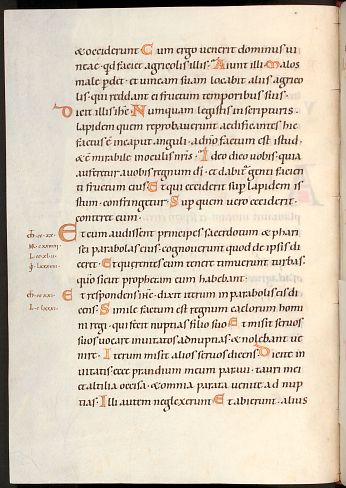 & occiderunt Cum ergo venerit dominus vi
neae · qd faciet agricolis illis · Aiunt illi · Malos
male pdet · et vineam suam locabit aliis agrico
lis · qui reddant ei fructum temporibus suis ·
Dicit illis ihc · Numquam legistis in scripturis ·
lapidem quem reprobaverunt aedificantes hic
factus e in caput anguli · a dno factum est istud ·
& e mirabile in oculis nris · Ideo dico vobis · quia
auferetur a vobis regnum di · et dabit genti facien
ti fructum eius · Et qui ceciderit sup lapidem is
tum · confringetur · Sup quem vero ceciderit ·
conteret eum ·
Et cum audissent principes sacerdotum & phari
sei parabolas eius · cognoverunt quod de ipsis di
ceret · Et querentes eum tenere timuerunt turbas ·
quo sicut prophetam eum habebant ·
Et respondens ihc · dixit iterum in parabolis eis di
cens · Simile factum est regnum caelorum homi
ni regi · qui fecit nuptias filio suo Et misit servos
suos vocare invitatos ad nuptias · & nolebant ve
nire · Iterum misit alios servos dicens · Dicite in
vitatis · ecce prandium meum paravi · tauri mei
et altilia occisa · & omnia parata venite ad nup
tias · Illi autem neglexerunt Et abierunt · alius